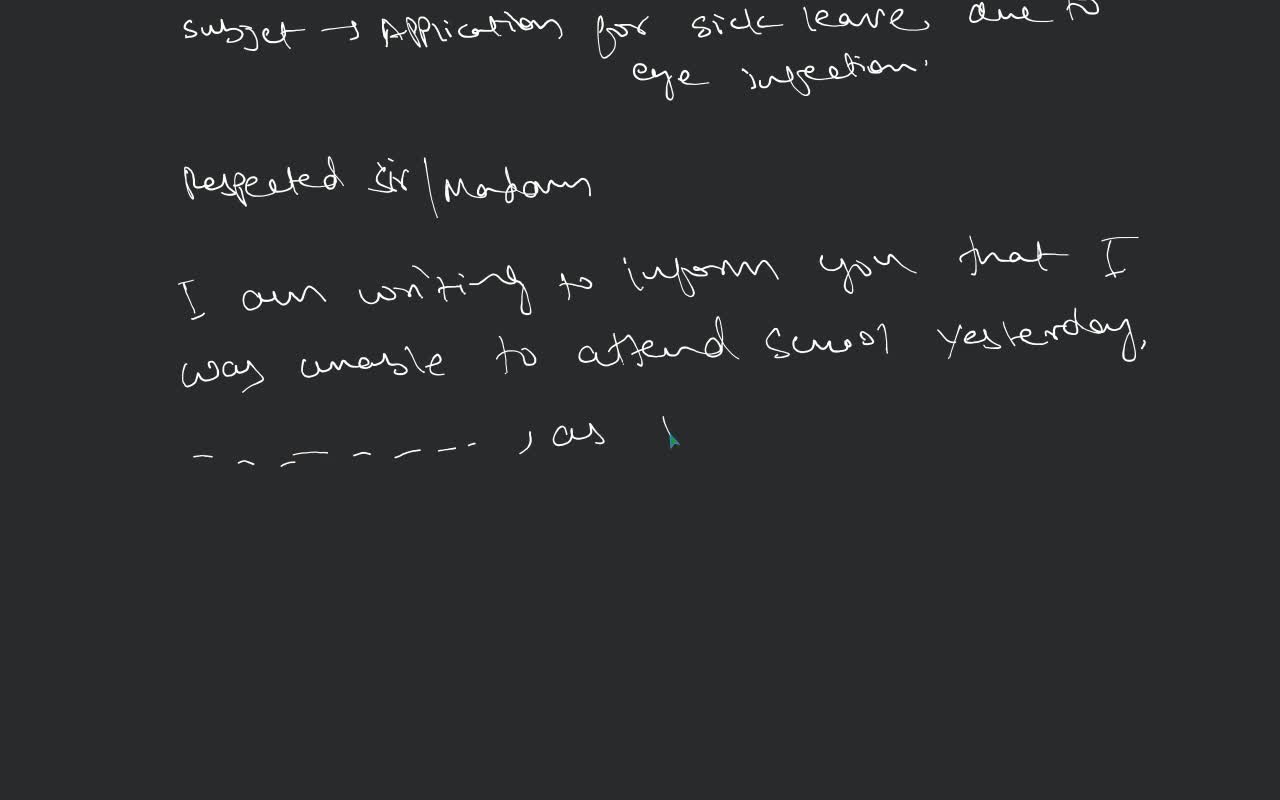 subjet → Application for sick leave, due to
eye infection.
Respected Sir/Madam
I am writing to inform you that I
was unable to attend school yesterday,
-------- , as